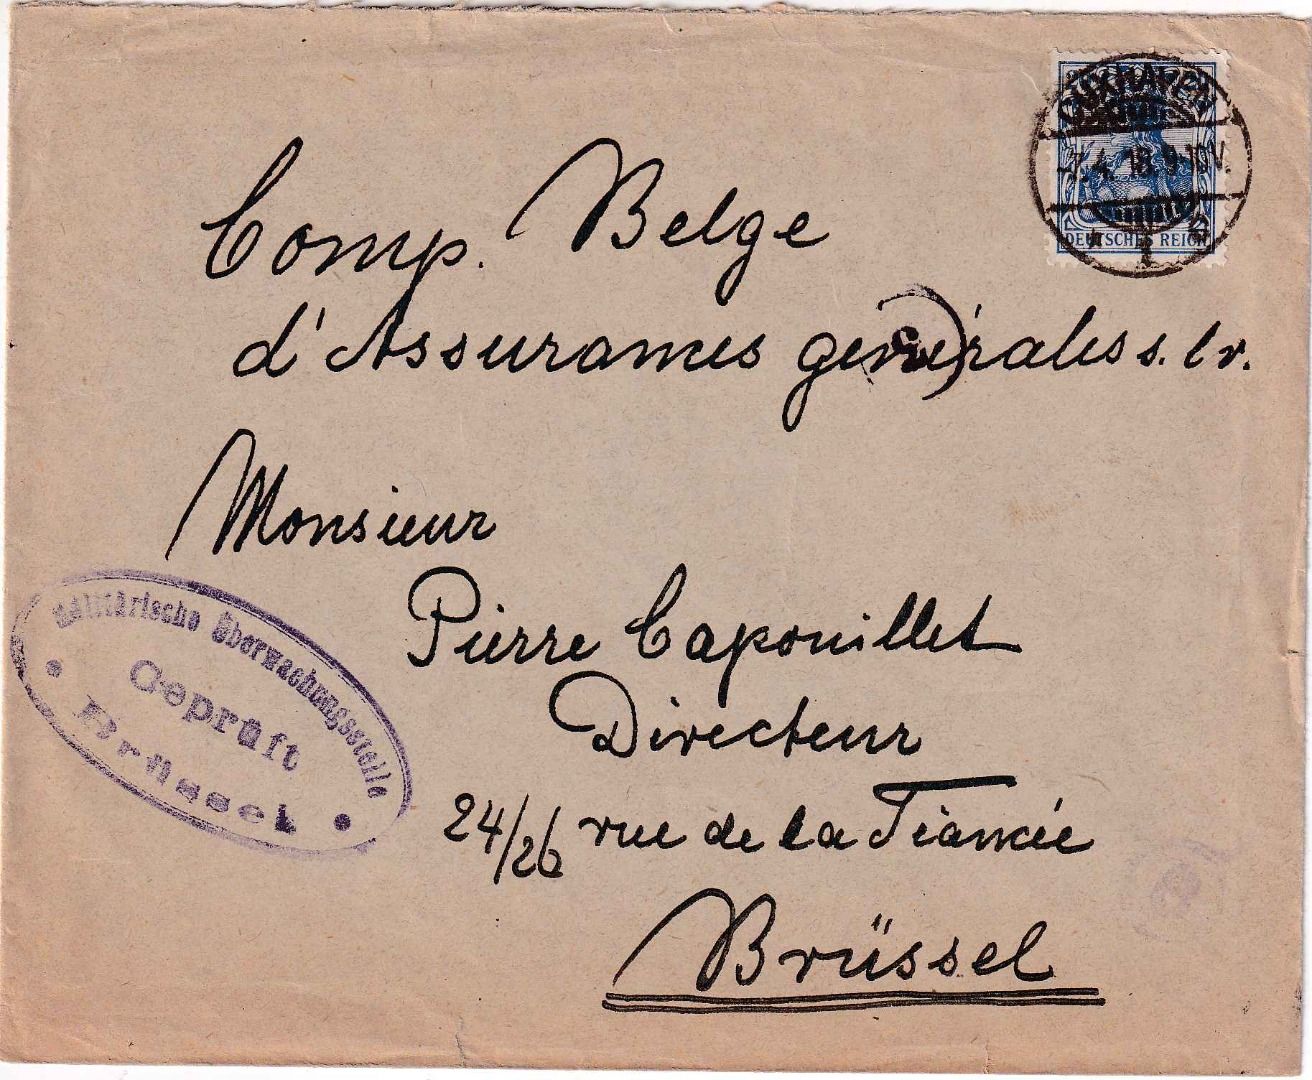 CUXHAVEN
-7.4.18.9-10V.
DEUTSCHES REICH
Comp. Belge
d'Assurances générales s. l v.
Monsieur
Pierre Capouillet
Directeur
24/26 rue de la Fiancée
Brüssel
Militärische Überwachungsstelle
Geprüft
Brüssel